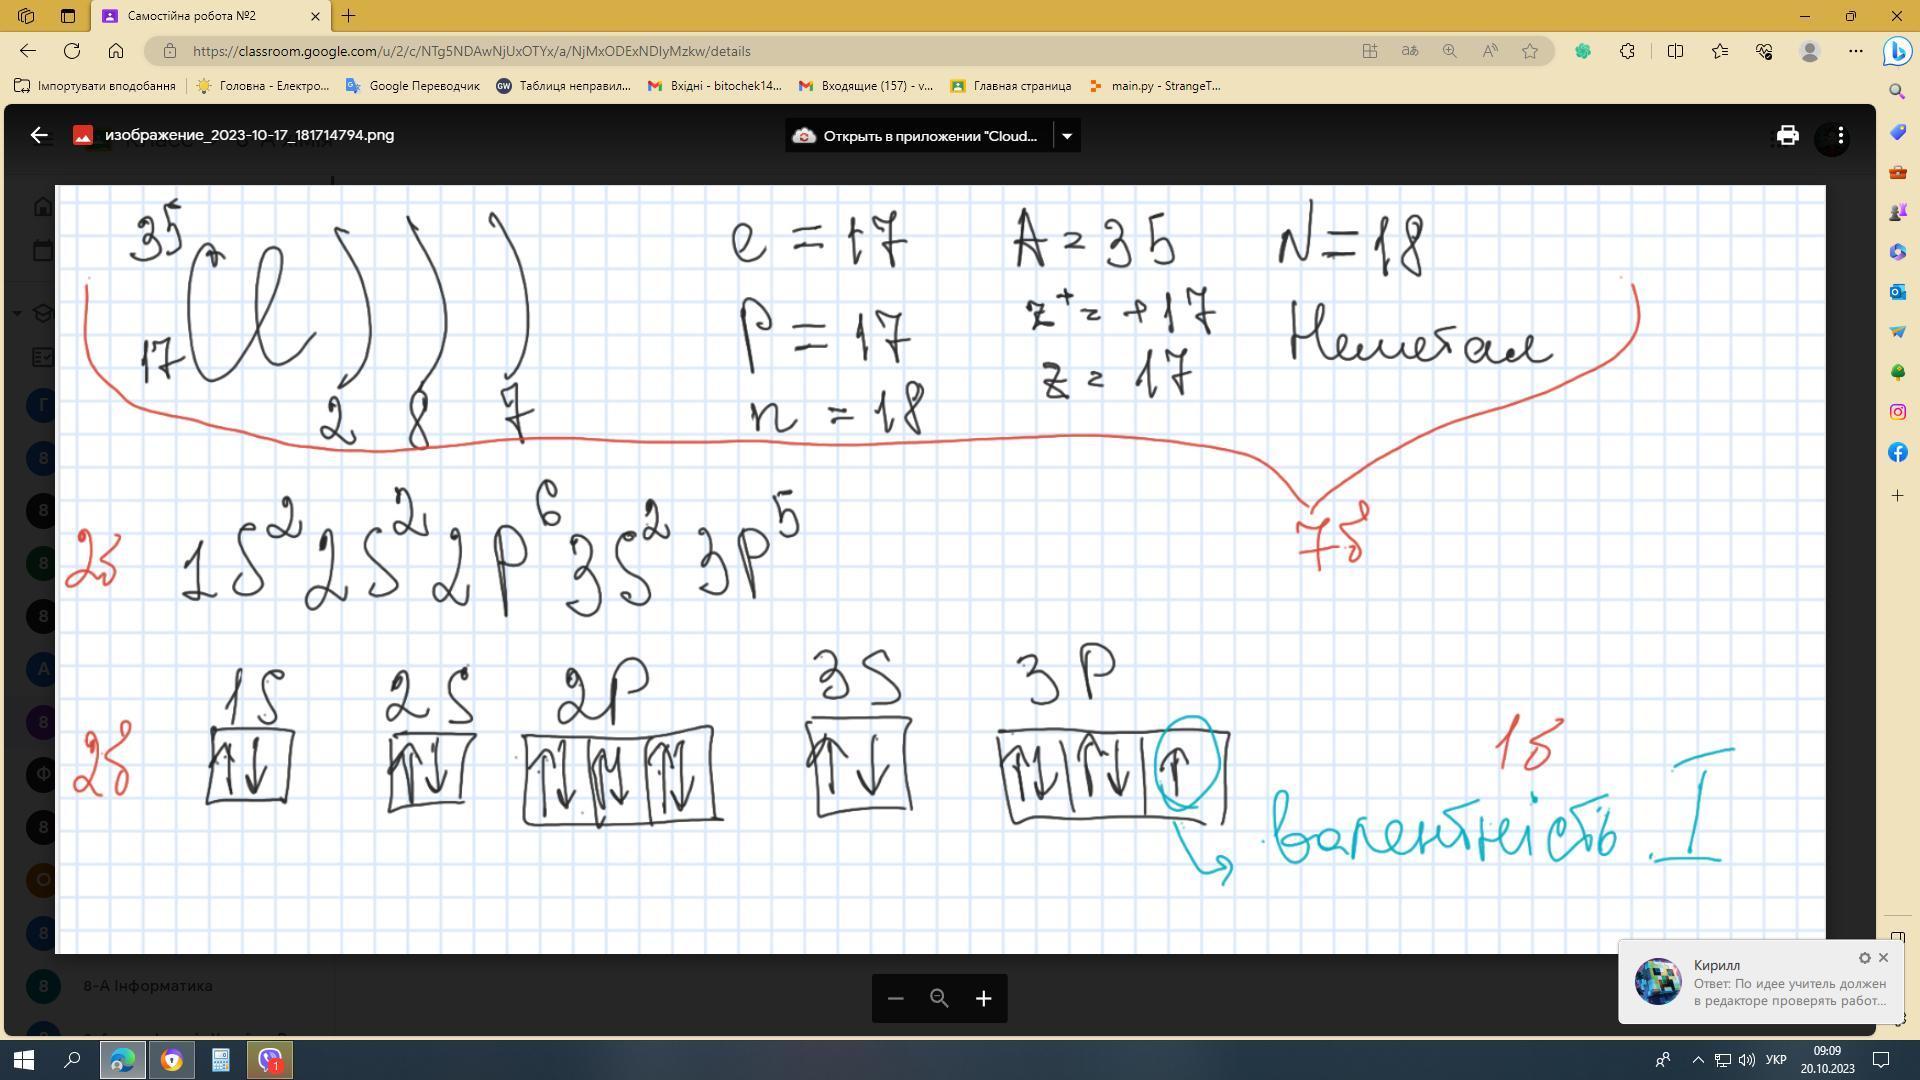 Самостійна робота №2
https://classroom.google.com/u/2/c/NTg5NDAwNjUxOTYx/a/NjMxODExNDIyMzkw/details
Імпортувати вподобання Головна - Електро... Google Переводчик Таблиця неправил... Вхідні - bitochek14... Входящие (157) - v... Главная страница main.py - StrangeT...
изображение_2023-10-17_181714794.png Открыть в приложении "Cloud...
35 Cl 17 2 8 7
e = 17 A = 35 N = 18
P = 17 z⁺ = +17 Неметал
n = 18 z = 17
7б
2б 1S² 2S² 2P⁶ 3S² 3P⁵
1S 2S 2P 3S 3P
2б ↑↓ ↑↓ ↑↓ ↑↓ ↑↓ ↑↓ ↑↓ ↑↓ ↑ 1б
валентність I
8-А Інформатика
Кирилл
Ответ: По идее учитель должен
в редакторе проверять работ...
УКР 09:09
20.10.2023